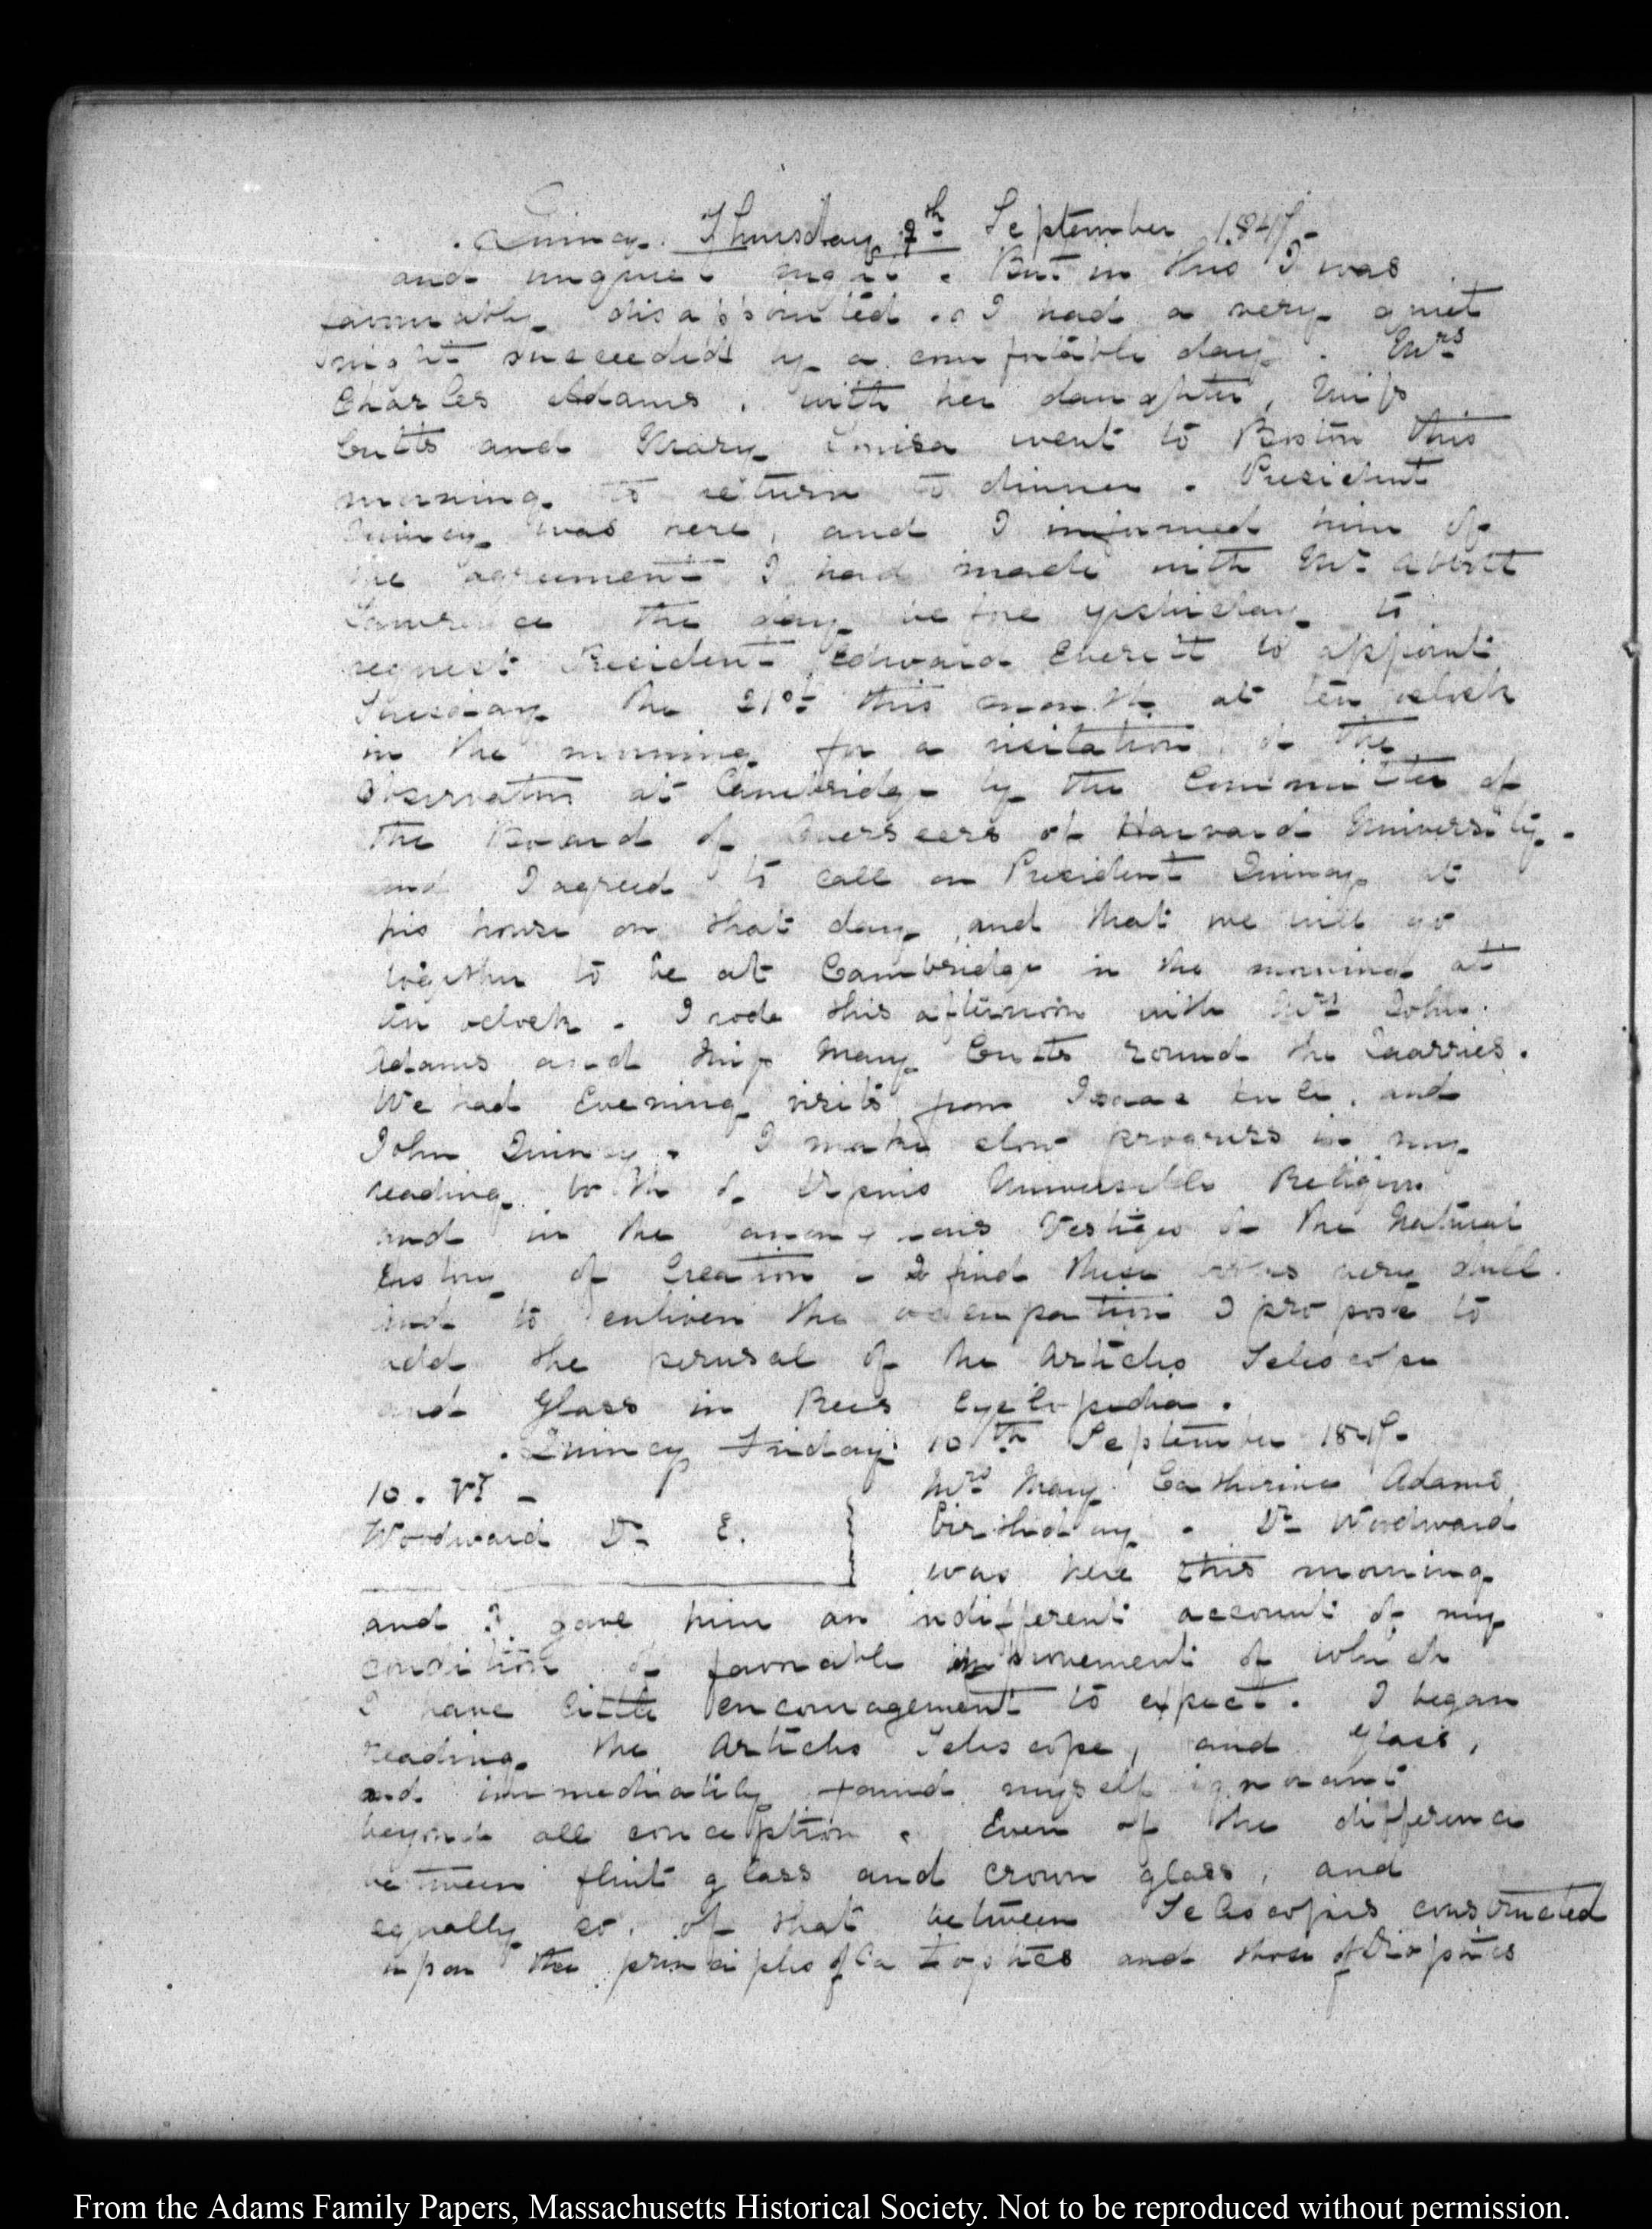 Quincy. Thursday 9th September 1847.
and unquiet night. But in this I was
favourably disappointed. I had a very quiet
night succeeded by a comfortable day. Mrs
Charles Adams, with her daughter, Miss
Cutts and Mary Louisa went to Boston this
morning to return to dinner. President
Quincy was here, and I informed him of
the agreement I had made with Mr Abbott
Lawrence the day before yesterday to
request President Edward Everett to appoint
Tuesday the 21st this month at ten oclock
in the morning for a visitation of the
Observatory at Cambridge by the Committee of
the Board of Overseers of Harvard University.
and I agreed to call on President Quincy at
his house on that day and that we will go
together to be at Cambridge in the morning at
ten oclock. I rode this afternoon with Mrs John
Adams and Miss Mary Cutts round the Quarries.
We had Evening visits from Isaac and
John Quincy. I make slow progress in my
reading both of Dupuis Religion
and in the anonymous Vestiges of the Natural
History of Creation. I find these very dull
and to enliven the occupation I propose to
add the perusal of the Articles Telescope
and Glass in Rees Cyclopedia.
Quincy Friday 10th September 1847.
10. VI.
Mrs Mary Catherine Adams
Woodward Dr E.
Birthday. Dr Woodward
was here this morning
and I gave him an indifferent account of my
condition of favorable improvement of which
I have little encouragement to expect. I began
reading the Articles Telescope, and Glass,
and immediately found myself ignorant
beyond all conception. Even of the difference
between flint glass and crown glass, and
equally so, of that between Telescopes constructed
upon the principles of Catoptics and those of Dioptics